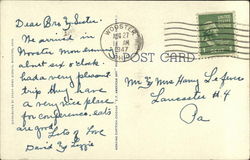 Dear Bro & Sister.
We arrived in
Wooster mon evening
about six o'clock
had a very pleasant
trip they have
a very nice place
for conference, eats
are good.
Lots of Love
David & Lizzie
WOOSTER
AUG 27
AM
1947
POST CARD
Mr & Mrs Harry
Lancaster #4
Pa